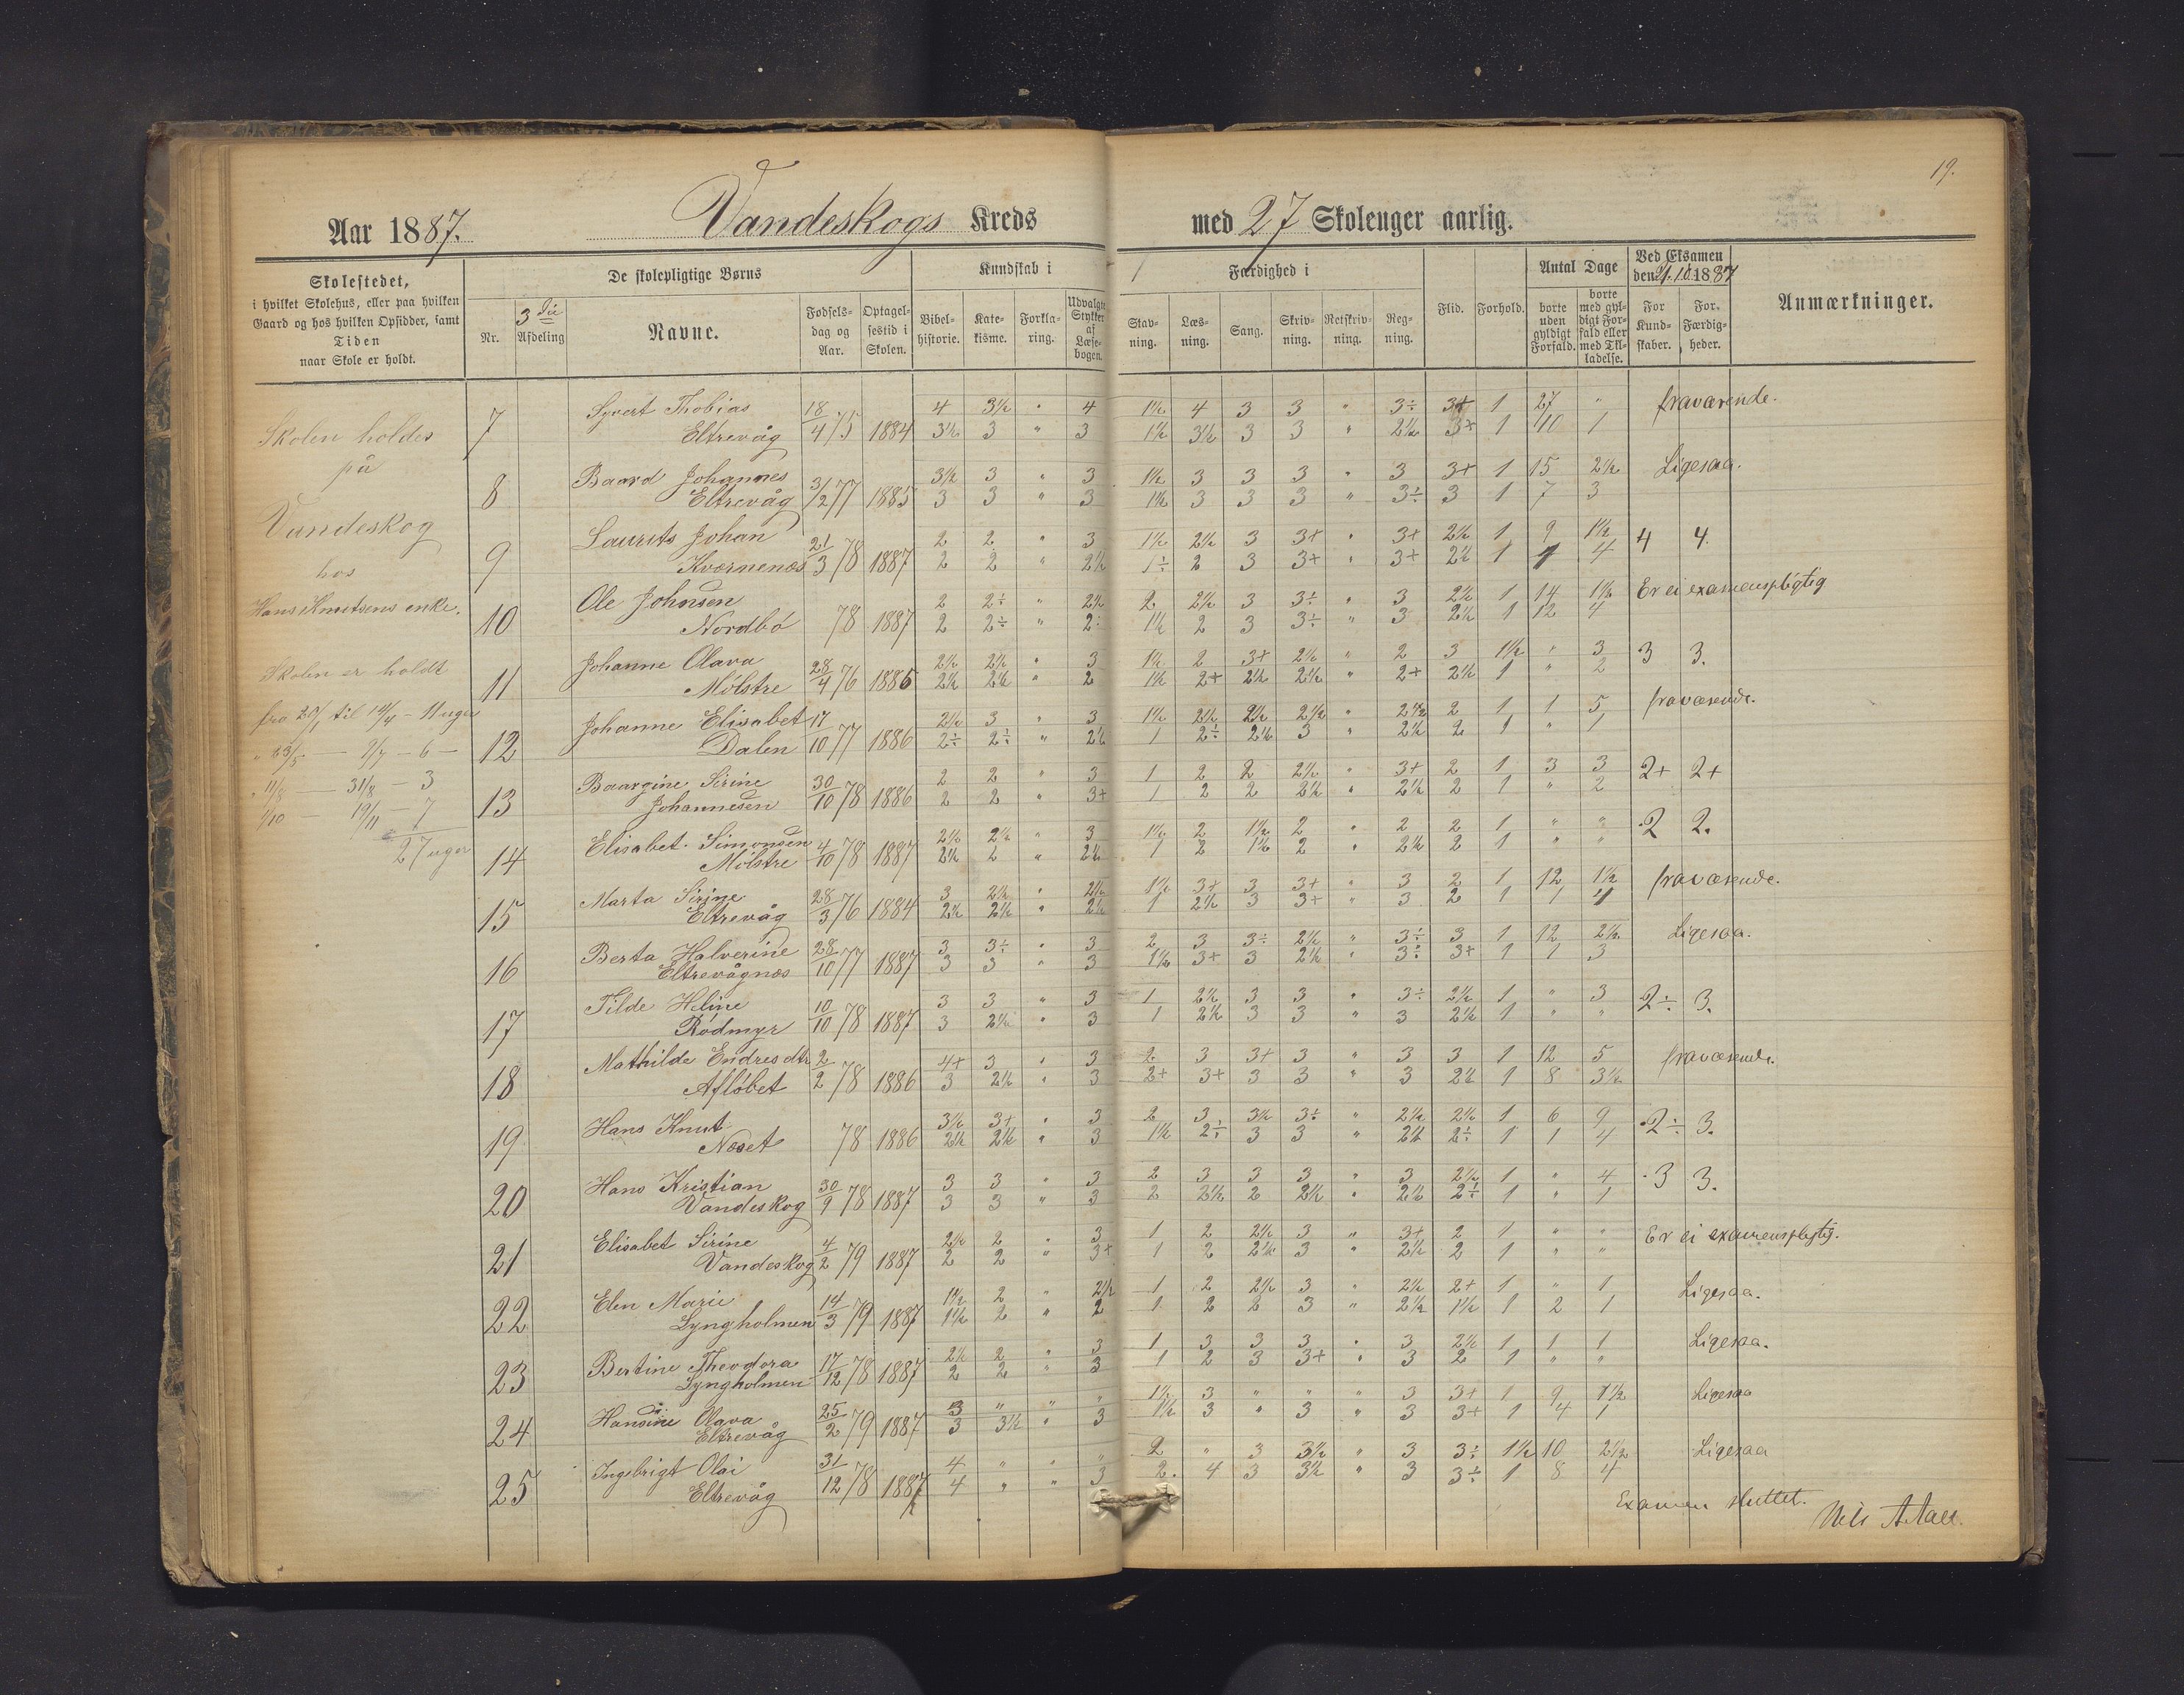 19.
Aar 1887. Vandeskogs Kreds med 27 Skoleuger aarlig.
Skolestedet,
i hvilket Skolehus, eller paa hvilken
Gaard og hos hvilken Opsidder, samt
Tiden
naar Skole er holdt.
De skolepligtige Børns
Nr. 3die Afdeling Navne. Fødselsdag og Aar. Optagelsestid i Skolen.
Kundskab i
Bibelhistorie. Katekisme. Forklaring. Udvalgte Stykker af Læsebogen.
Færdighed i
Stavning. Læsning. Sang. Skrivning. Retskrivning. Regning.
Flid. Forhold.
Antal Dage
borte uden gyldigt Forfald. borte med gyldigt Forfald eller med Tilladelse.
Ved Eksamen den 1887
For Kundskaber. For Færdigheder.
Anmærkninger.
Skolen holdes
på
Vandeskog
hos
Hans Knutsens enke.
Skolen er holdt
fra 20/1 til 14/4 - 11 uger
" 23/5 — 2/7 - 6 —
" 11/8 — 31/8 - 3
1/10 — 19/11 - 7
27 uger
7 Syvert Thobias 18 4 3½ " 4 1½ 4 3 3 " 3÷ 3+ 1 27 " fraværende.
Eltrevåg 4/75 1884 3½ 3 " 3 1½ 3½ 3 3 " 2½ 3+ 1 10 1
8 Baard Johannes 3 3½ 3 " 3 1½ 3 3 3 " 3 3+ 1 15 2½ Ligesaa.
Eltrevåg 2/77 1885 3 3 " 3 1½ 3 3 3 " 3÷ 3 1 7 3
9 Laurits Johan 21 2 2 " 3 1½ 2½ 3 3+ " 3+ 2½ 1 9 1½ 4 4.
Kvernenæs 3/78 1887 2 2 " 2½ 1÷ 2 3 3+ " 3+ 2½ 1 1 4
10 Ole Johnsen 2 2÷ " 2½ 2 2½ 3 3÷ " 3 2½ 1 14 1½ Er ei examenspligtig
Nordbó 78 1887 2 2÷ " 2÷ 1½ 2 3 3÷ " 3 2½ 1 12 4
11 Johanne Olava 28 2½ 2½ " 3 1½ 2 3+ 2½ " 2 3 1½ " 3 3 3.
Mólstre 4/76 1885 2½ 2½ " 2 1½ 2+ 2½ 2½ " 2+ 2½ 1 " 2
12 Johanne Elisabet 17 2½ 3 " 3 1½ 2½ 2½ 2½ " 2½ 2 1 1 5 fraværende.
Dalen 10/77 1886 2÷ 2÷ " 2½ 1 2÷ 2½ 3 " 2½ 2 1 " 1
13 Baargine Sirine 30 2 2 " 3 1 2 2 2½ " 3+ 2 1 3 3 2+ 2+
Johannesen 10/78 1886 2 2 " 3+ 1 2 2 2½ " 2½ 2 1 " 2
14 Elisabet Simonsen 4 2½ 2½ " 3 1½ 2 1½ 2 " 2 2 1 " " 2 2.
Mólstre 10/78 1887 2½ 2 " 2½ 1 2 1½ 2 " 2½ 2 1 " "
15 Marta Sirine 28 3 2½ " 2½ 1½ 3+ 3 3+ " 3 2 1 12 1½ fraværende.
Eltrevåg 3/76 1884 2½ 2½ " 2½ 1 2½ 3 3+ " 3 2 1 1 4
16 Berta Halverine 28 3 3÷ " 3 2 3 3÷ 2½ " 3÷ 3 1 12 2½ Ligesaa.
Eltrevågnæs 10/77 1887 3 3 " 3 1½ 3+ 3 2½ " 3÷ 3+ 1 1 3
17 Tilde Heline 10 3 3 " 3 1 2½ 3 3 " 3÷ 2½ 1 " 3 2÷ 3.
Ródmyr 10/78 1887 3 2½ " 3 1 2½ 3 3 " 3 2½ 1 " "
18 Mathilde Endresdtr 2 4+ 3 " 3 2 3 3+ 3 " 3 3 1 12 5 fraværende.
Aflóbet 2/78 1886 3 2½ " 3 2+ 3+ 3 3 " 3 2½ 1 8 3½
19 Hans Knut 3½ 3+ " 3 2 3 3½ 3÷ " 2½ 2½ 1 6 9 2÷ 3.
Neset 78 1886 2½ 2½ " 3 1½ 2÷ 3 3 " 2½ 2÷ 1 1 4
20 Hans Kristian 30 3 3 " 3 2 3 3 3 " 3 2½ 1 " 4 3 3.
Vandeskog 9/78 1887 3 3 " 3 2 2½ 2 2½ " 2½ 2÷ 1 " 1
21 Elisabet Sirine 4 2½ 2 " 3 1 2 2½ 3 " 3+ 2 1 " " Er ei examenspligtig.
Vandeskog 2/79 1887 2 2 " 3+ 1 2 2½ 3 " 2½ 2 1 " "
22 Elen Marie 14 1½ 2 " 2½ 1 2 2½ 3 " 2½ 2+ 1 " 1 Ligesaa.
Lyngholmen 3/79 1887 1½ 2 " 2 1 2 2 3 " 2½ 1½ 1 2 1
23 Bertine Theodora 17 2½ 2 " 3 1 3 3 3 " 3 2½ 1 1 1 Ligesaa.
Lyngholmen 12/78 1887 2 2 " 3 1 2 3 3+ " 3 2 1 " "
24 Hansine Olava 25 3 " " " 1½ 3 " " " 3 3+ 1 9 1½ Ligesaa
Eltrevåg 2/79 1887 3 3½ " 3 1½ 3 " 3 " 3 3+ 1 4 1
25 Ingebrigt Olai 31 4 " " " 2 " 3 3½ " 3 3÷ 1½ 10 2½ Ligesaa
Eltrevåg 12/78 1887 4 " " 3 2. 4 3 3½ " 3 3÷ 1 8 4
Examen sluttet.
Nils